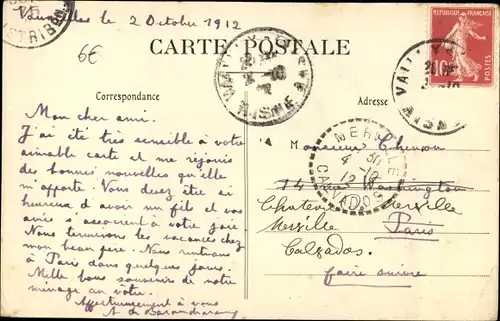 le 2 Octobre 1912
6€
CARTE POSTALE
Correspondance
Adresse
REPUBLIQUE FRANÇAISE
10
VAILLY
AISNE
VAILLY
AISNE
DISTRIBON
MERVILLE
CALVADOS
Mon cher ami.
J'ai été très sensible à votre
aimable carte et me réjouis
des bonnes nouvelles qu'elle
m'apporte. Vous devez être si
heureux d'avoir un fils et vos
amis s'associent à votre joie
Nous terminons les vacances chez
mon beau père. Nous rentrons
à Paris dans quelques jours.
Mille bons souvenirs de notre
ménage au vôtre.
Affectueusement à vous
Monsieur
14 rue Washington
Merville
Merville Paris
Calvados.
faire suivre